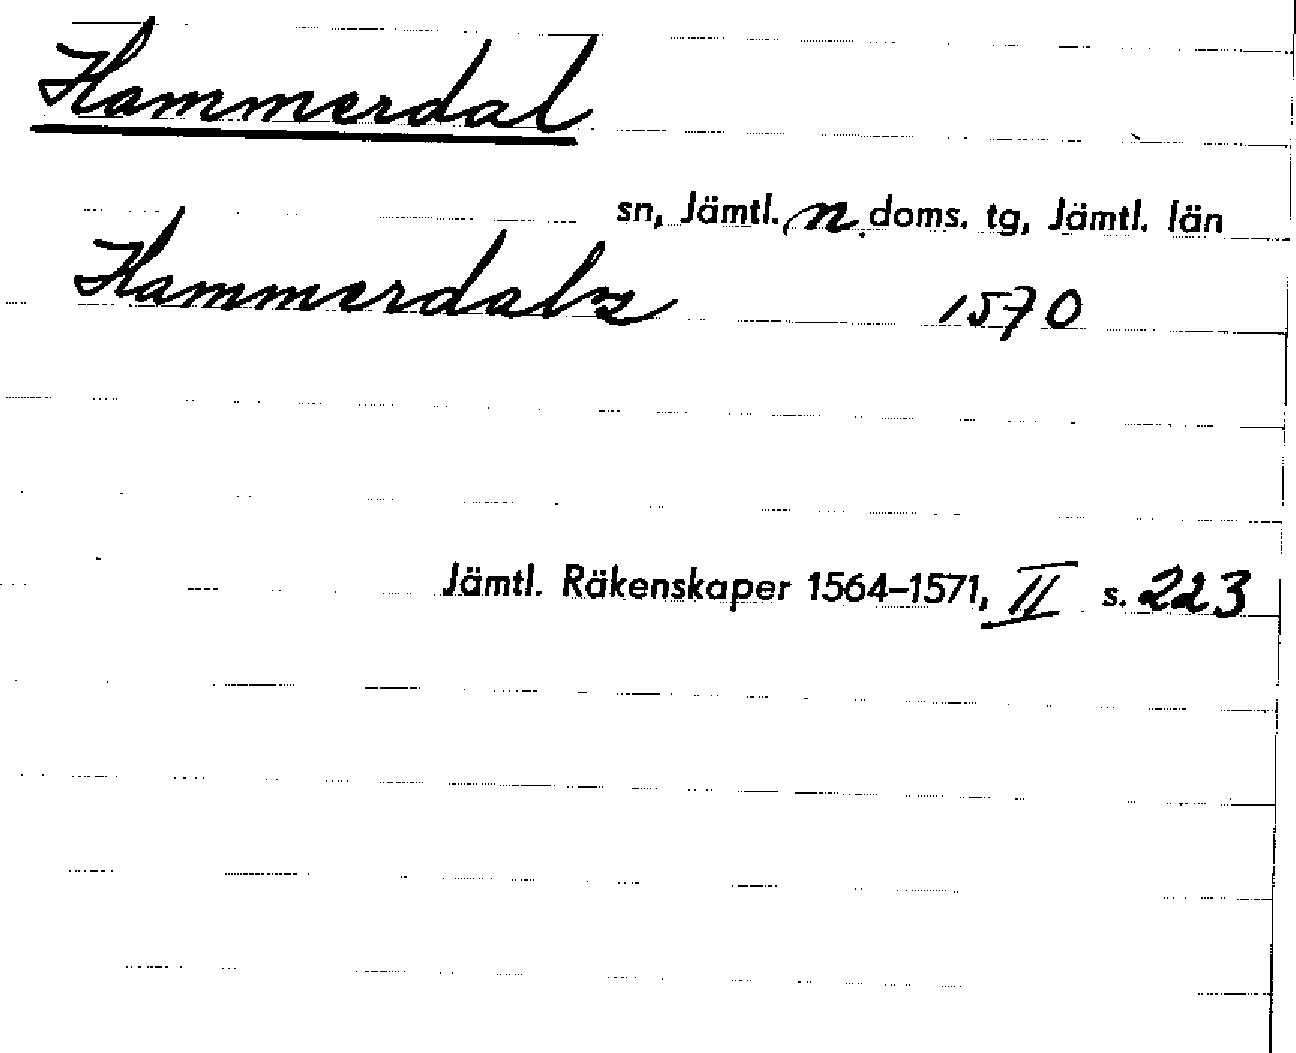 Hammerdal
sn, Jämtl. n. doms. tg, Jämtl. län
Hammerdalz 1570
Jämtl. Räkenskaper 1564–1571, II s. 223